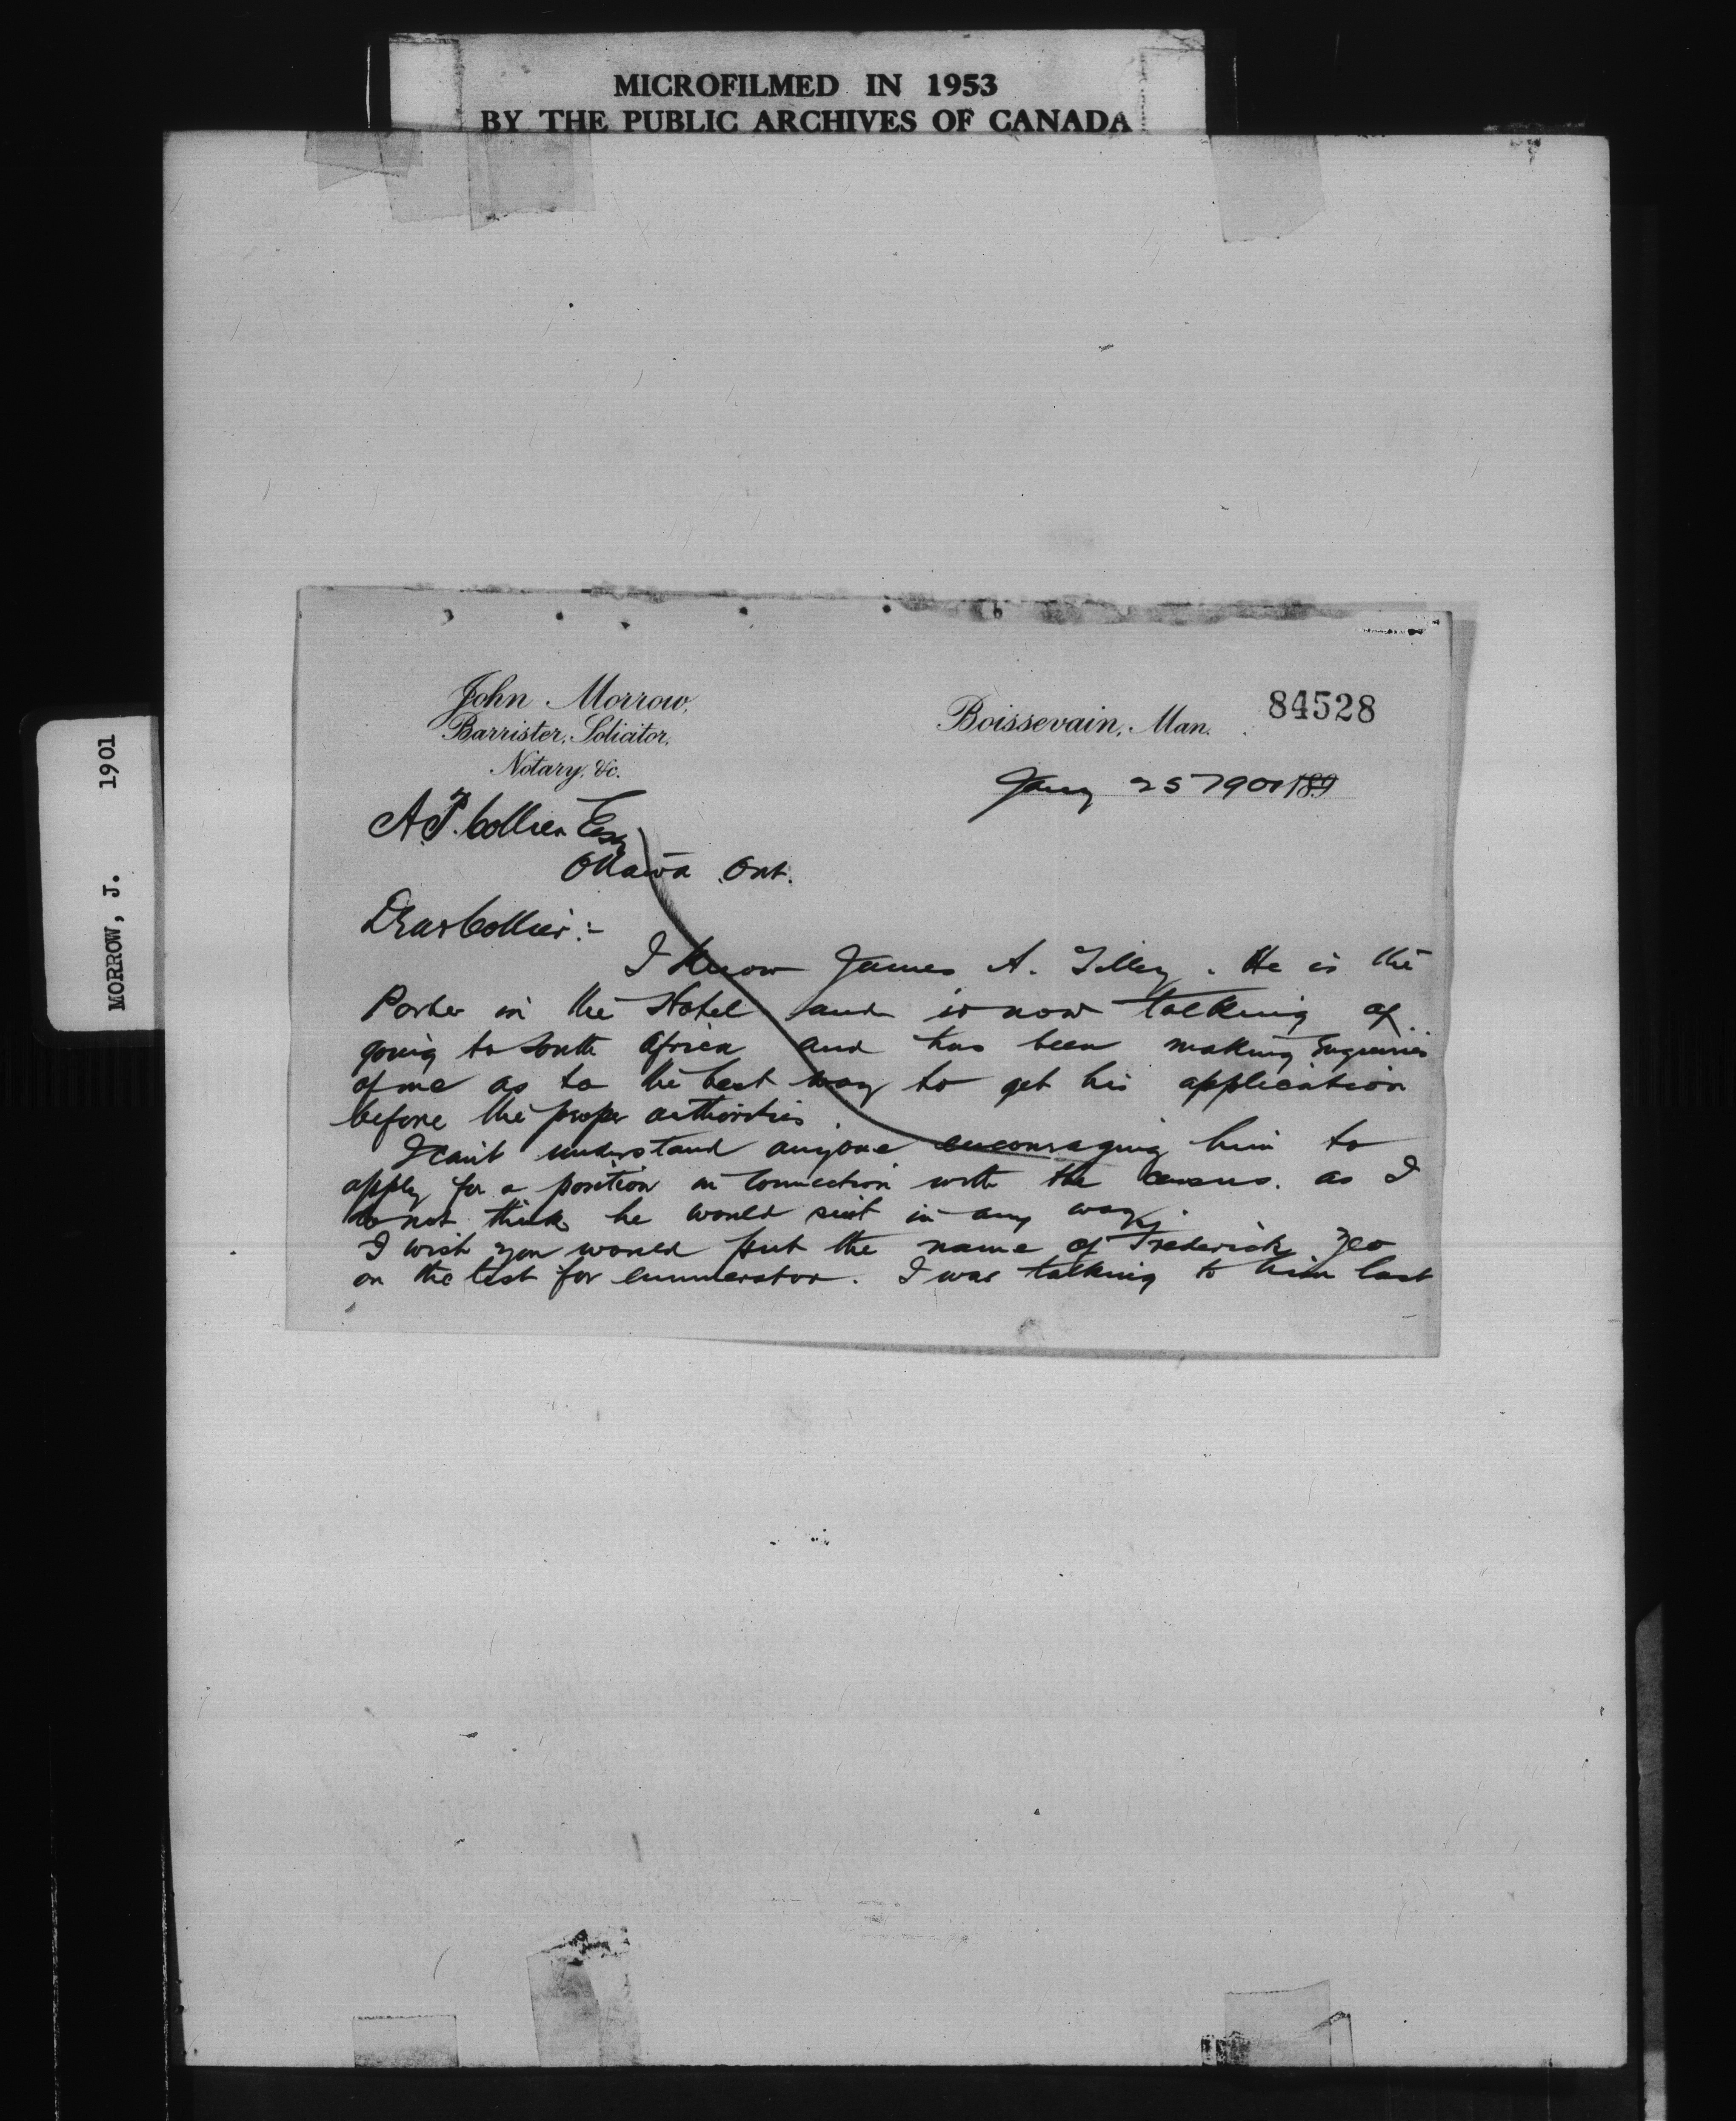 MICROFILMED IN 1953
BY THE PUBLIC ARCHIVES OF CANADA
MORROW, J. 1901
John Morrow,
Barrister, Solicitor,
Notary, &c.
Boissevain, Man.
84528
Jany 25 1901 189
A.P. Collier Esq
Ottawa Ont.
Dear Collier:-
I know James A. Tilley. He is the
Porter in the Hotel and is now talking of
going to South Africa and has been making Enquiries
of me as to the best way to get his application
before the proper authorities
I can't understand anyone encouraging him to
apply for a position in connection with the census. as I
do not think he would suit in any way.
I wish you would put the name of Frederick Yeo
on the list for enumerator. I was talking to him last